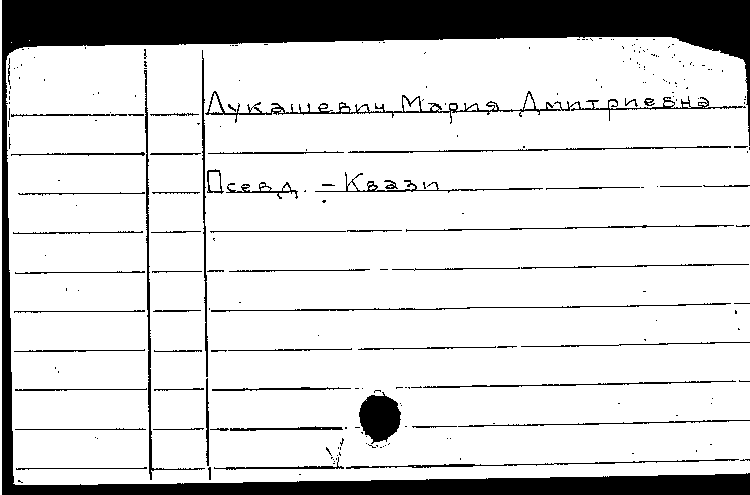 Лукашевич, Мария Дмитриевна
Псевд. – Квази